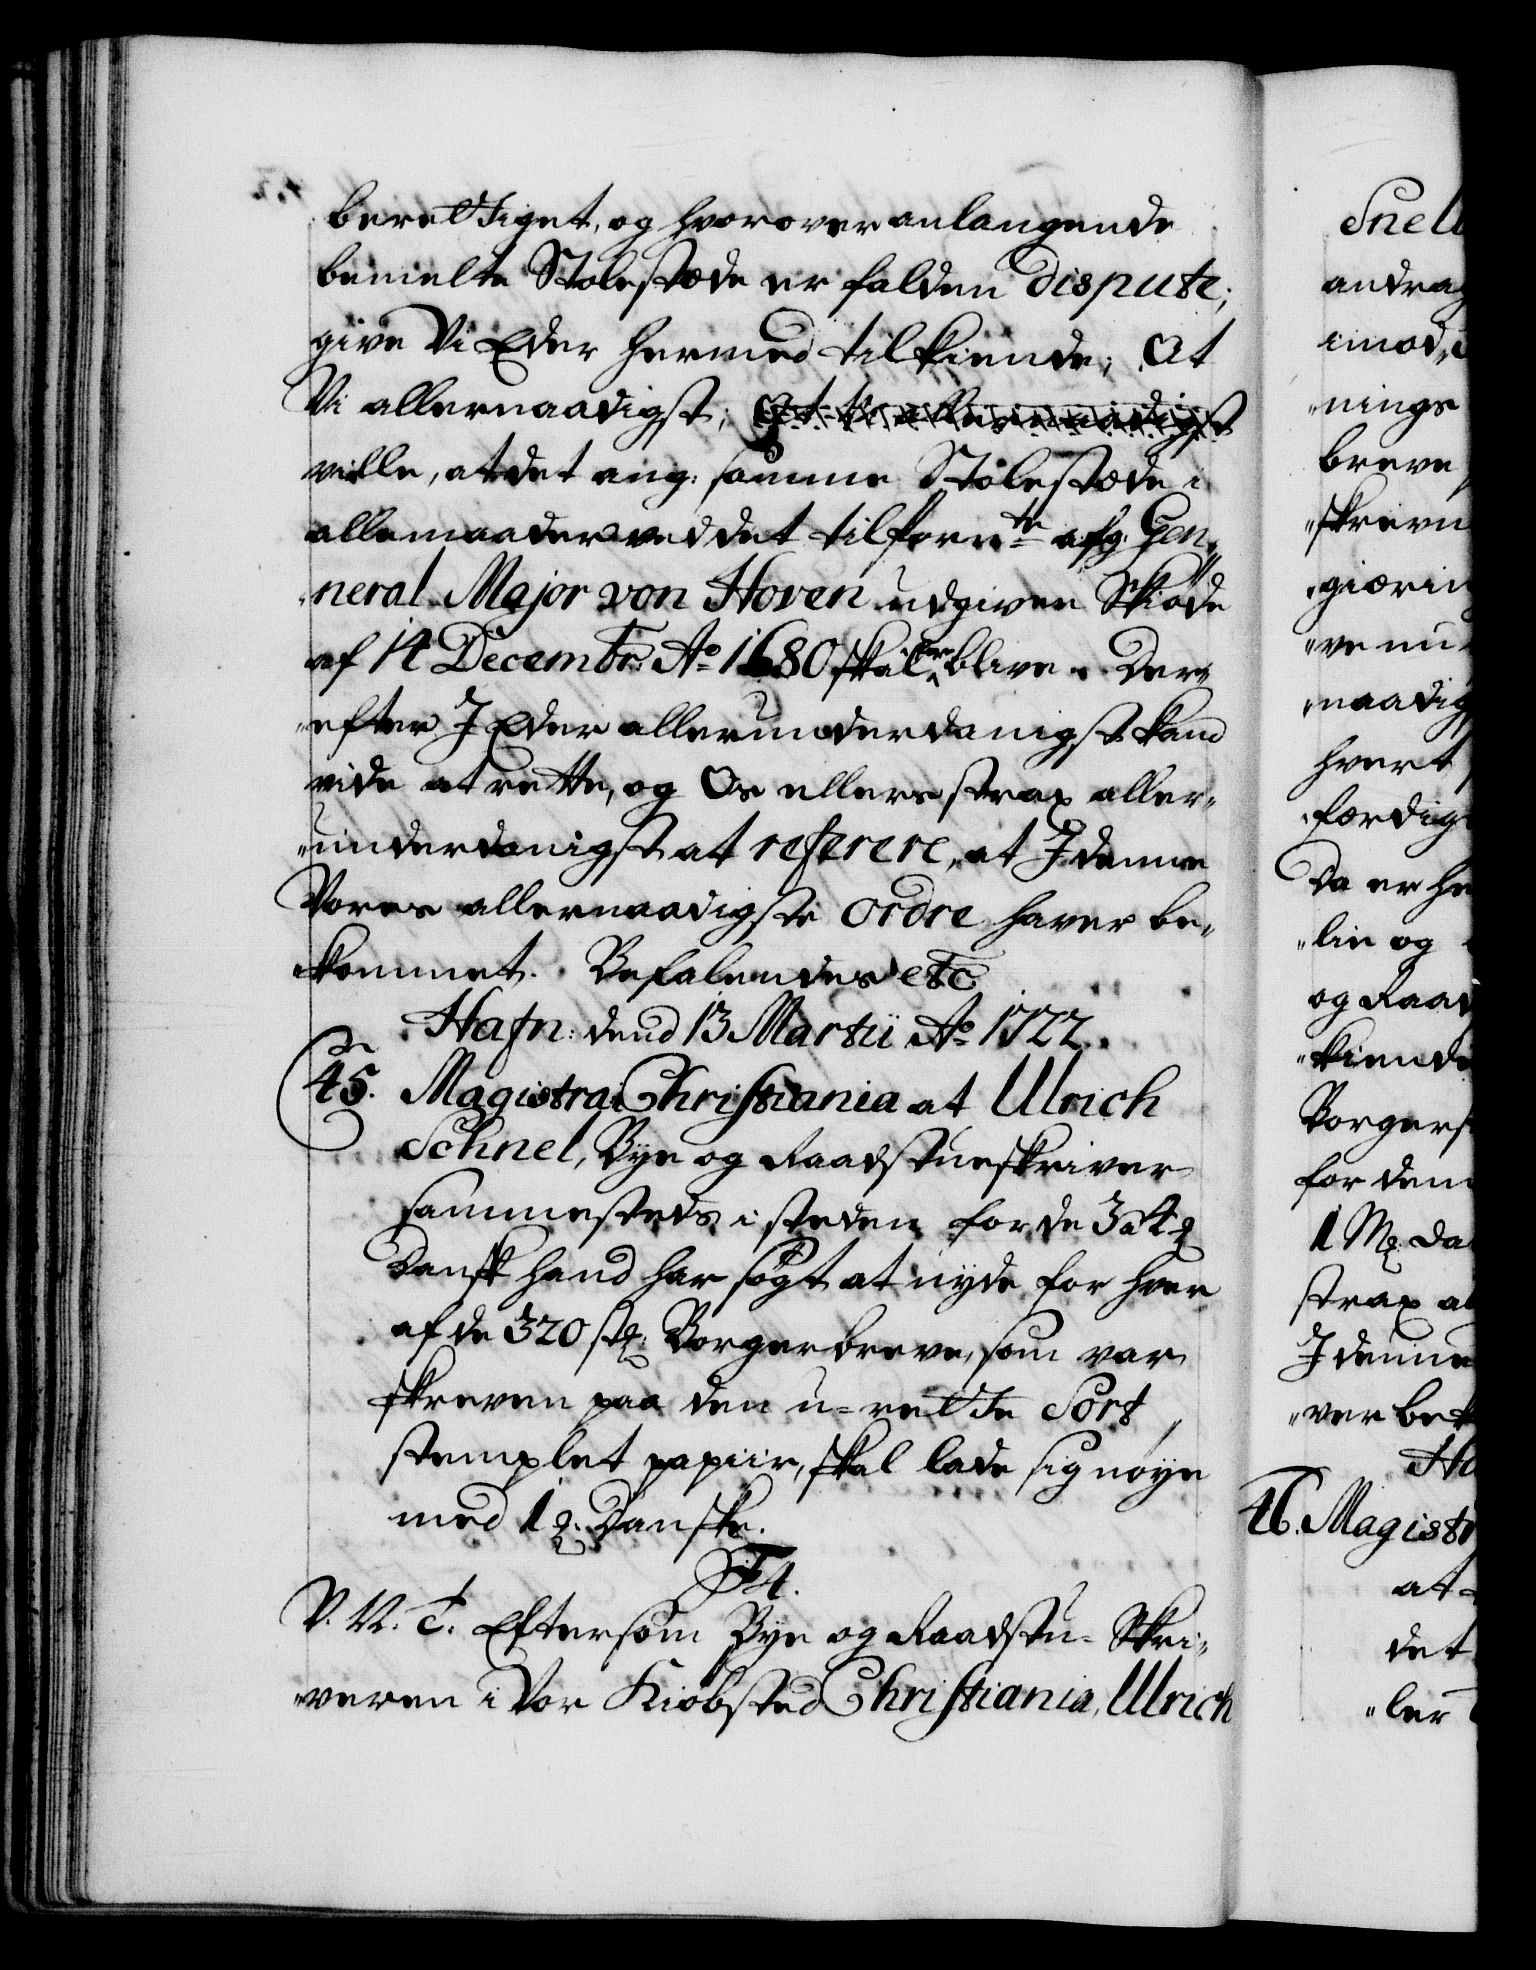 berettiget, og hvorover anlangende
bemelte Stolestæde er falden dispute;
give Vi Eder hermed tilkiende, At
Vi allernaadigst, At Vi allernaadigst
ville, at det ang: samme Stolestæde i
allemaader ved det tilforn af Gen„
„neral Major von Hoven udgiven Skiøde
af 14 Decembr: Ao 1680 skal for„blive. Der„
„efter I Eder allerunderdanigst kand
vide at rette, og Os ellers strax aller„
„underdanigst at referere, at I denne
Vores allernaadigste Ordre haver be„
„kommet. Befalendes etc
Hafn: dend 13 Martii Ao 1722.
45. Magistra: Christiania at Ulrich
Schnel, Bye og Raadstueskriver
sammesteds i steden for de 3 a 4 Mk
Dansk hand har søgt at nyde for hver
af de 320 stk: Borgerbreve, som var
skreven paa den u-rette Sort
stemplet papiir, skal lade sig nøye
med 1 Mk: Danske.
F4.
V. V. T. Eftersom Bye og Raadstu- Skri„
„veren i Vor Kiøbsted Christiania, Ulrich
Snell
andrag
imod,
„nings
breve
„skreven
„giærin
„ve nu
„naadig
hvert
færdig
Da er he
„lin og
og Raad
„kiende
Borgers
for dem
1 Mk: Da
strax at
I denne
„ver bek
Ha
46. Magistr
at
det
„ler